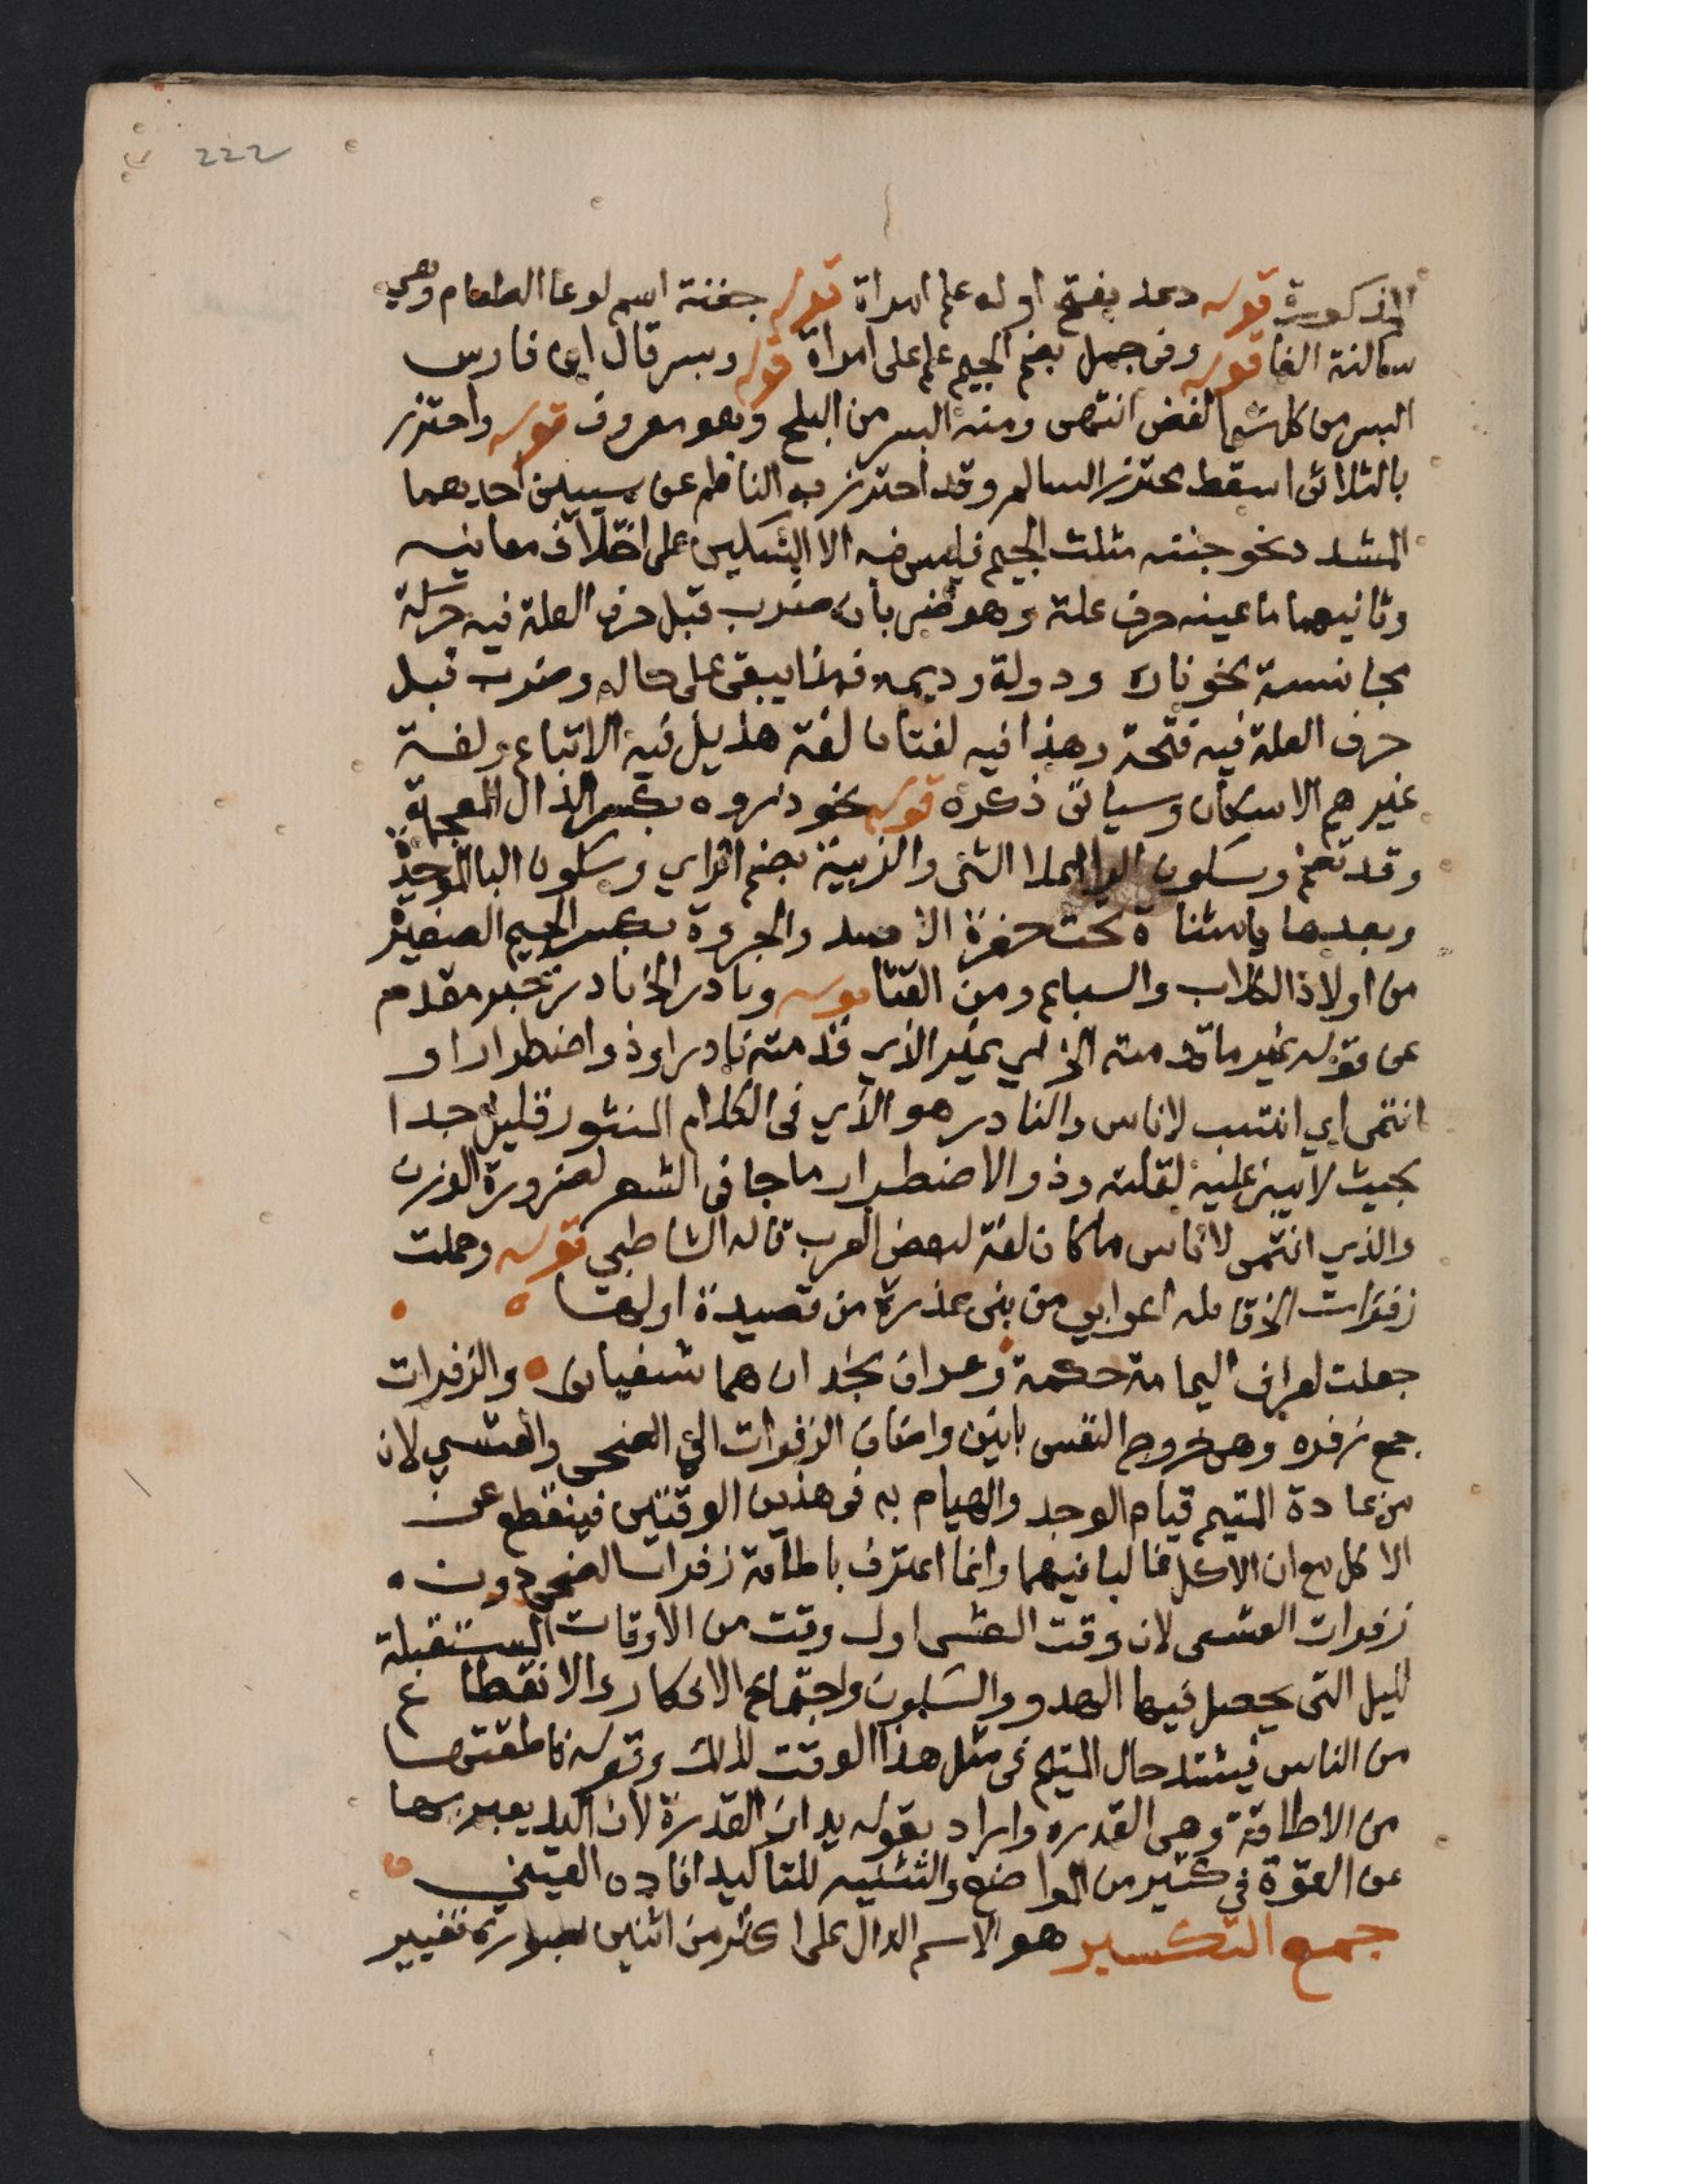 222
المذكورة قوله دعد بفتح اوله علم امراة قوله جفنة اسم لوعا الطعام وهي
ساكنة الفا قوله وفى جمل بضم الجيم علم على امراة قوله وبسر قال ابن فارس
البسر من كل شى الغض انتهى ومنه البسر من البلح وهو معروف قوله واحترز
بالثلاثى اسقط محترز السالم وقد احترز به الناظم عن سيين احديهما
المشدد نحو جنته مثلث الجيم فليس فيه الا التسكين على اختلاف معانيه
وثانيهما ما عينه حرف علة وهو ضربان ضرب قبل حرف العلة فيه حركة
مجانسة نحو نارة ودولة وديمه فهذا يبقى على حاله وضرب قبل
حرف العلة فيه فتحة وهذا فيه لغتان لغة هذيل فيه الاتباع ولغة
غيرهم الاسكان وسياتى ذكره قوله نحو ذروه بكسر الذال المعجمة
وقد تضم وسكون الرا اعلا الشى والزبية بضم الزاي وسكون البا الموحدة
وبعدها يا مثناة تحت حفرة الاسد والجروة بكسر الجيم الصغير
من اولاد الكلاب والسباع ومن القثا قوله ونادر الخ نادر خبر مقدم
عن قوله غير ما قدمته الخ اي غير الذي قدمته نادر اوذو اضطرار او
انتمى اي انتسب لاناس والنادر هو الاتي فى الكلام المنثور قليل جدا
بحيث لا يبنى عليه لقلته وذو الاضطرار ما جا فى الشعر لضرورة الوزن
والذي انتمى لاناس ما كان لغة لبعض العرب قاله الشاطبي قوله وحملت
زفرات الخ قائله اعرابي من بنى عذرة من قصيدة اولها
جعلت لعراف اليمامة حكمة وعراف نجد ان هما شفيانى والزفرات
جمع زفره وهى خروج النفس بانين واضاف الزفرات الى الضحى والعشي لان
من عادة المتيم قيام الوجد والهيام به فى هذين الوقتين فينقطع عن
الاكل مع ان الاكل غالبا فيهما وانما اعترف باطاقة زفرات الضحى دون
زفرات العشى لان وقت العشى اول وقت من الاوقات المستقبلة
لليل التى يحصل فيها الهدو والسكون واجتماع الافكار والانقطاع
من الناس فيشتد حال المتيم فى مثل هذا الوقت لذلك وقوله فاطقتها
من الاطاقة وهى القدره واراد بقوله يدان القدرة لان اليد يعبر بها
عن القوة في كثير من المواضع والتثنيه للتاكيد افاده العيني
جمع التكسير هو الاسم الدال على اكثر من اثنين بصورة تغيير